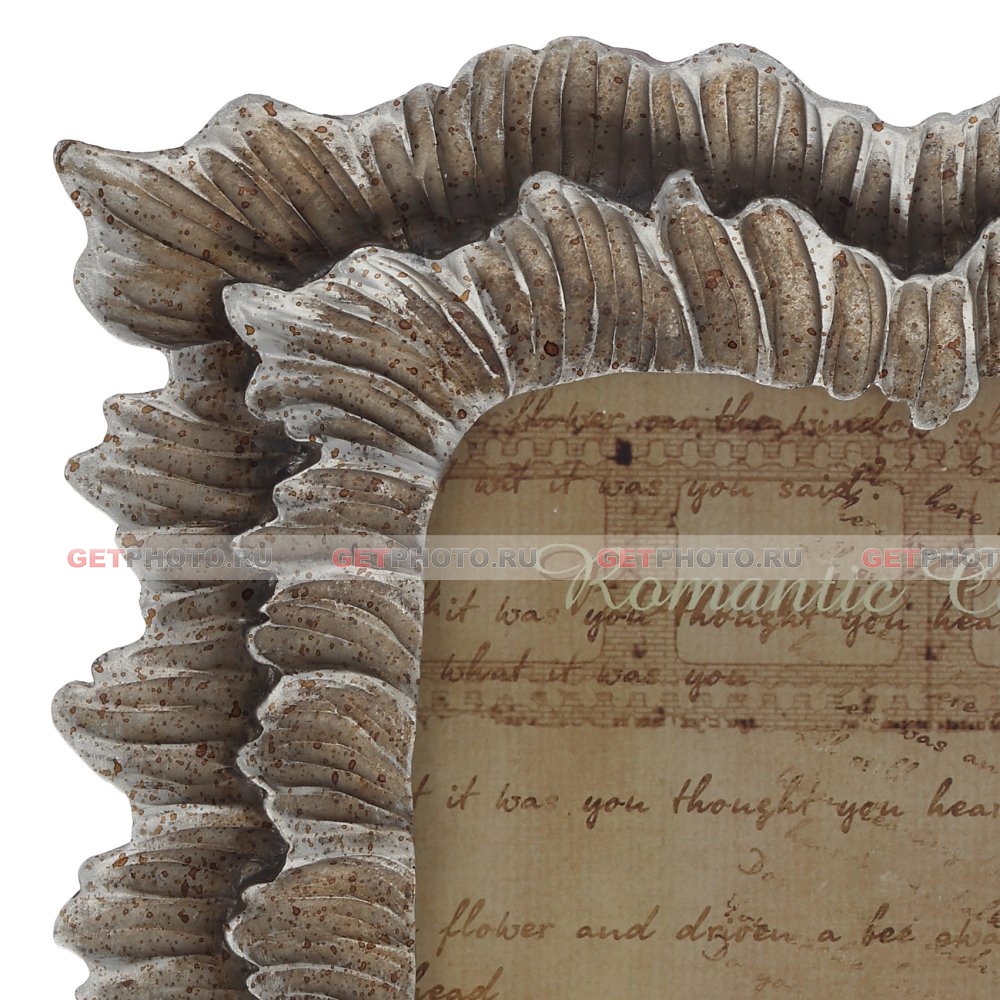 flower on the window sil
wit it was you said.
here
GETPHOTO.RU GETPHOTO.RU GETPHOTO.RU GETPHOTO.RU
Romantic C
it was you thought you hea
what it was you
was an
t it was you thought you hear
flower and driven a bee awa
head